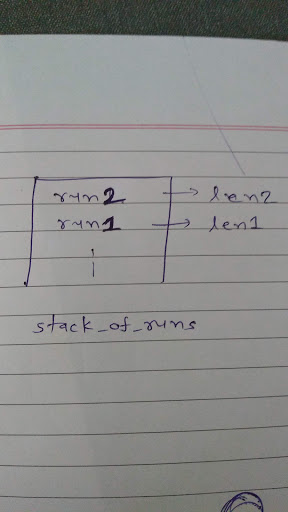 run2 → len2
run1 → len1
stack_of_runs